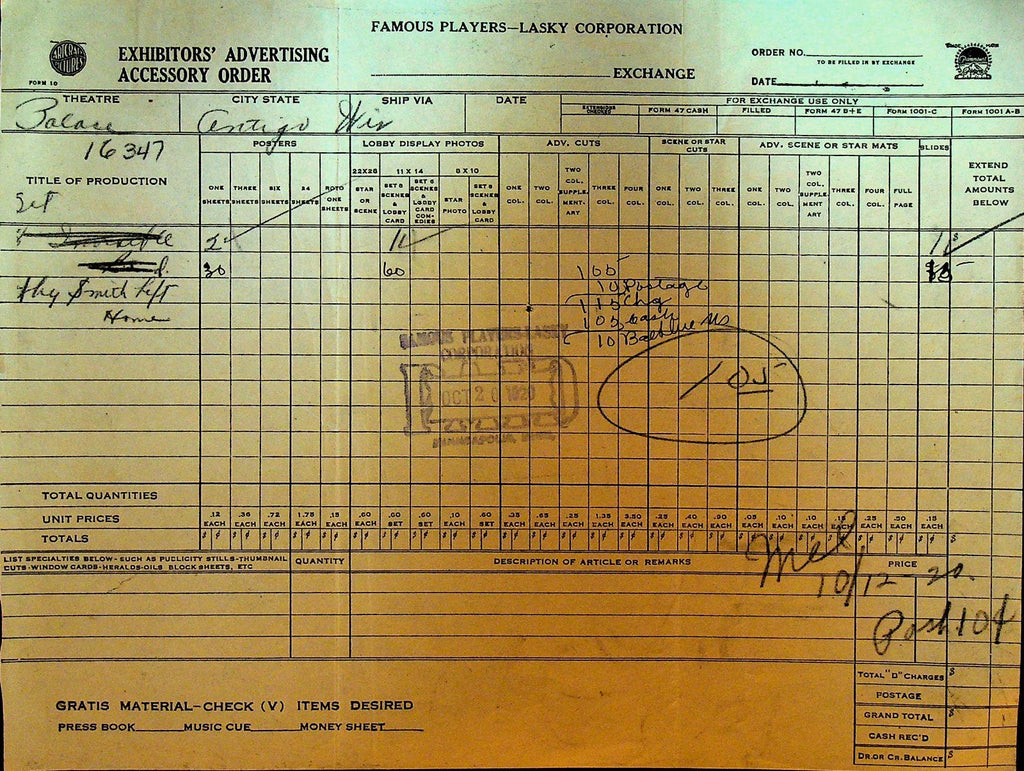 FAMOUS PLAYERS—LASKY CORPORATION
ARTCRAFT PICTURES
EXHIBITORS' ADVERTISING
ACCESSORY ORDER
FORM 10
EXCHANGE
ORDER NO.
TO BE FILLED IN BY EXCHANGE
DATE
Paramount
THEATRE
Palace
CITY STATE
Antigo Wis
SHIP VIA
DATE
FOR EXCHANGE USE ONLY
EXTENSIONS CHECKED
FORM 47 CASH
FILLED
FORM 47 B+E
FORM 1001-C
FORM 1001 A-B
16347
TITLE OF PRODUCTION
Set
POSTERS
ONE SHEETS
THREE SHEETS
SIX SHEETS
24 SHEETS
ROTO ONE SHEETS
LOBBY DISPLAY PHOTOS
22X28
STAR OR SCENE
11 X 14
SET 8 SCENES & LOBBY CARD
SET 6 SCENES & LOBBY CARD COMEDIES
8 X 10
STAR PHOTO
SET 8 SCENES & LOBBY CARD
ADV. CUTS
ONE COL.
TWO COL.
TWO COL. SUPPLEMENT-ARY
THREE COL.
FOUR COL.
SCENE OR STAR CUTS
ONE COL.
TWO COL.
THREE COL.
ADV. SCENE OR STAR MATS
ONE COL.
TWO COL.
TWO COL. SUPPLEMENT ARY
THREE COL.
FOUR COL.
FULL PAGE
SLIDES
EXTEND TOTAL AMOUNTS BELOW
30 60
Why Smith Left
Home
105
10 Postage
115 Chg
105 Cash
10 Baldue us
105
FAMOUS PLAYERS-LASKY
CORPORATION
OCT 20 1920
MINNEAPOLIS, MINN.
TOTAL QUANTITIES
UNIT PRICES .12 EACH .36 EACH .72 EACH 1.75 EACH .15 EACH .60 EACH .60 SET .60 SET .10 EACH .60 SET .35 EACH .65 EACH .25 EACH 1.35 EACH 3.50 EACH .25 EACH .40 EACH .90 EACH .05 EACH .10 EACH .10 EACH .15 EACH .25 EACH .50 EACH .15 EACH
TOTALS $ ¢ $ ¢ $ ¢ $ ¢ $ ¢ $ ¢ $ ¢ $ ¢ $ ¢ $ ¢ $ ¢ $ ¢ $ ¢ $ ¢ $ ¢ $ ¢ $ ¢ $ ¢ $ ¢ $ ¢ $ ¢ $ ¢ $ ¢ $ ¢ $ ¢ $
LIST SPECIALTIES BELOW-SUCH AS PUBLICITY STILLS-THUMBNAIL
CUTS-WINDOW CARDS-HERALDS-OILS BLOCK SHEETS, ETC
QUANTITY
DESCRIPTION OF ARTICLE OR REMARKS
PRICE
10/12-20.
Post 10¢
TOTAL "D" CHARGES $
POSTAGE
GRAND TOTAL $
CASH REC'D
DR. OR CR. BALANCE $
GRATIS MATERIAL-CHECK (V) ITEMS DESIRED
PRESS BOOK MUSIC CUE MONEY SHEET